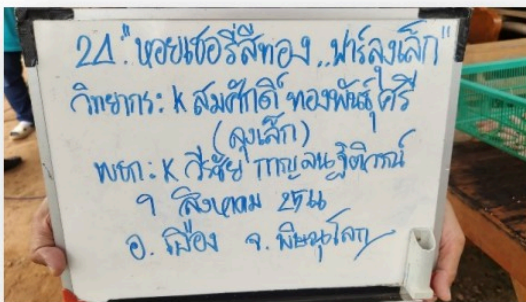 21. "หอยเชอรี่สีทอง..ฟาร์มลุงเล็ก"
วิทยากร: K สมศักดิ์ ทองพันธุ์ศรี
(ลุงเล็ก)
พยก: K วีรชัย
9 สิงหาคม
อ. เมือง จ. พิษณุโลก